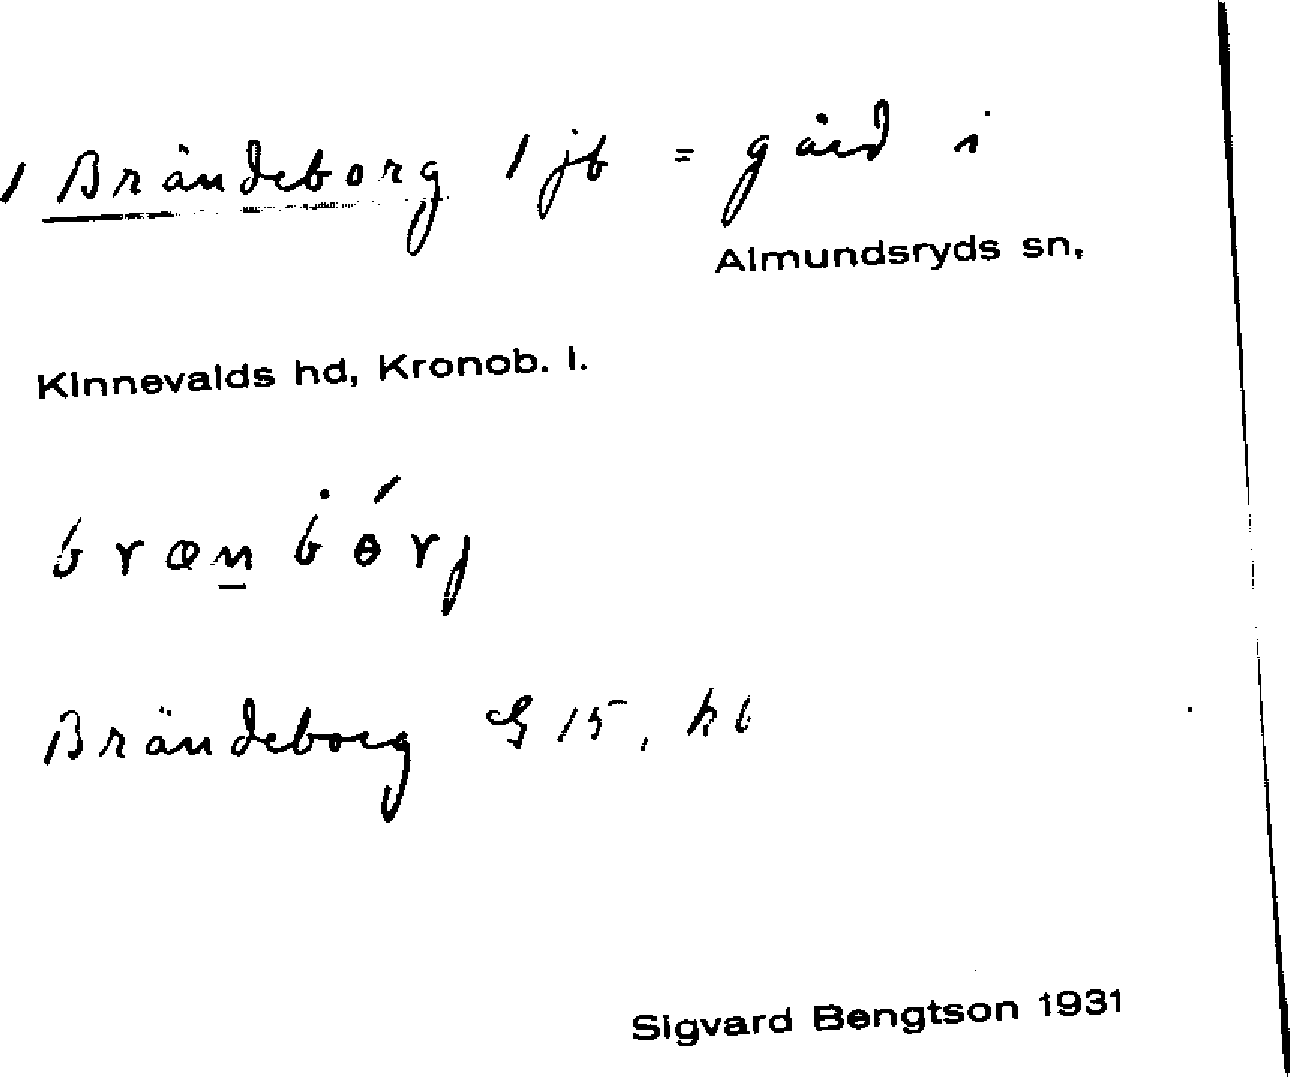 / Brändeborg / jb = gård i
Almundsryds sn,
Kinnevalds hd, Kronob. l.
brænbörj
Brändeborg G 15, kb
Sigvard Bengtson 1931